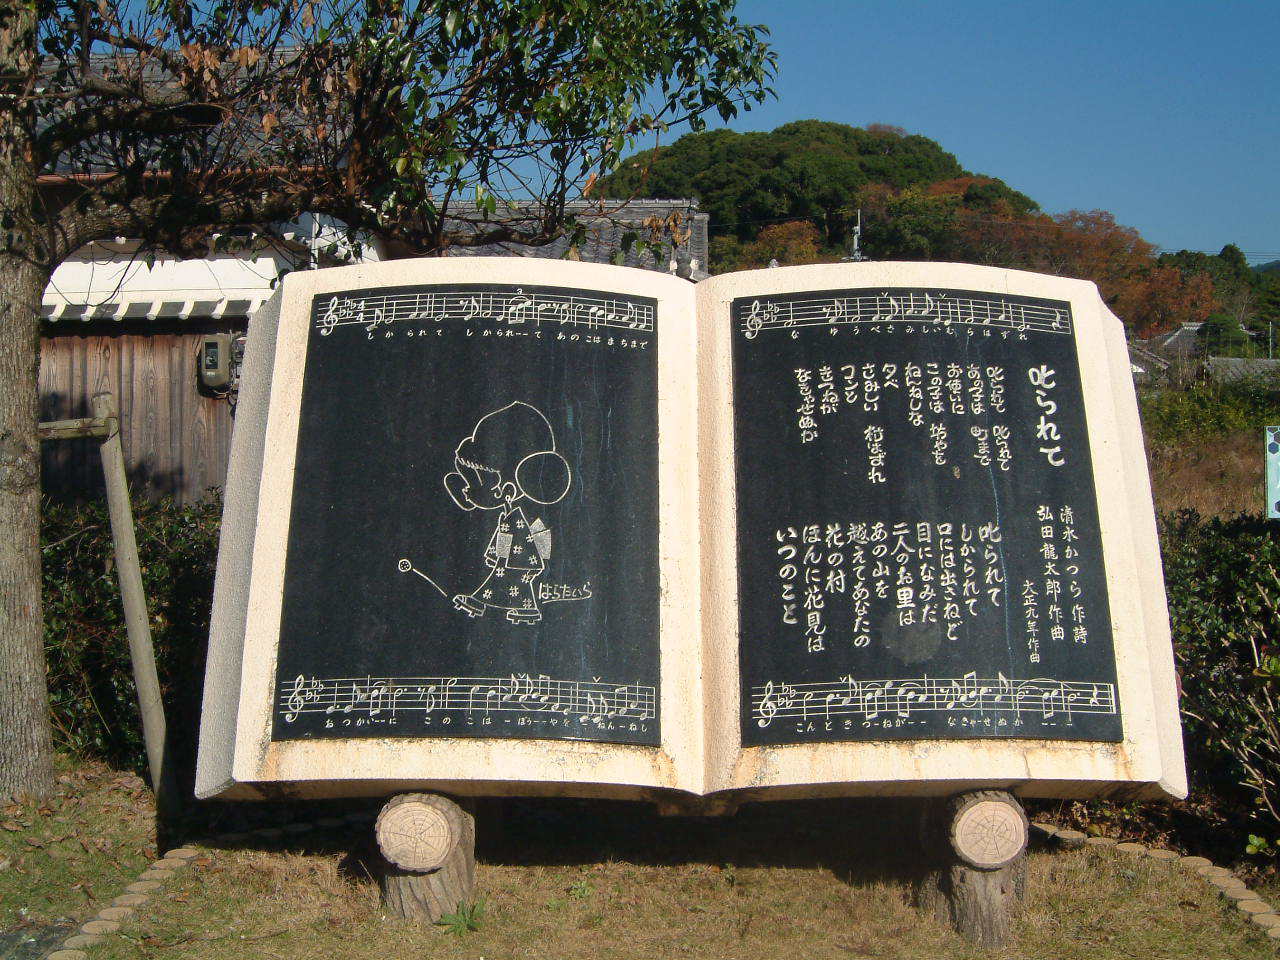 しかられて しかられーーて あのこは まちまで
はらたいら
おつかいーーに このこは ー ぼうーーやを ねんーねし
な ゆうべさみしいむらはずれ
叱られて
清水かつら作詩
弘田龍太郎作曲
大正九年作曲
叱られて 叱られて
あの子は 町まで
お使いに
この子は 坊やを
ねんねしな
夕べ
さみしい 村はずれ
コンと
きつねが
なきゃせぬか
叱られて
しかられて
口には出さねど
目になみだ
二人のお里は
あの山を
越えてあなたの
花の村
ほんに花見は
いつのこと
こんときつねがーー なきゃーせぬか ーー